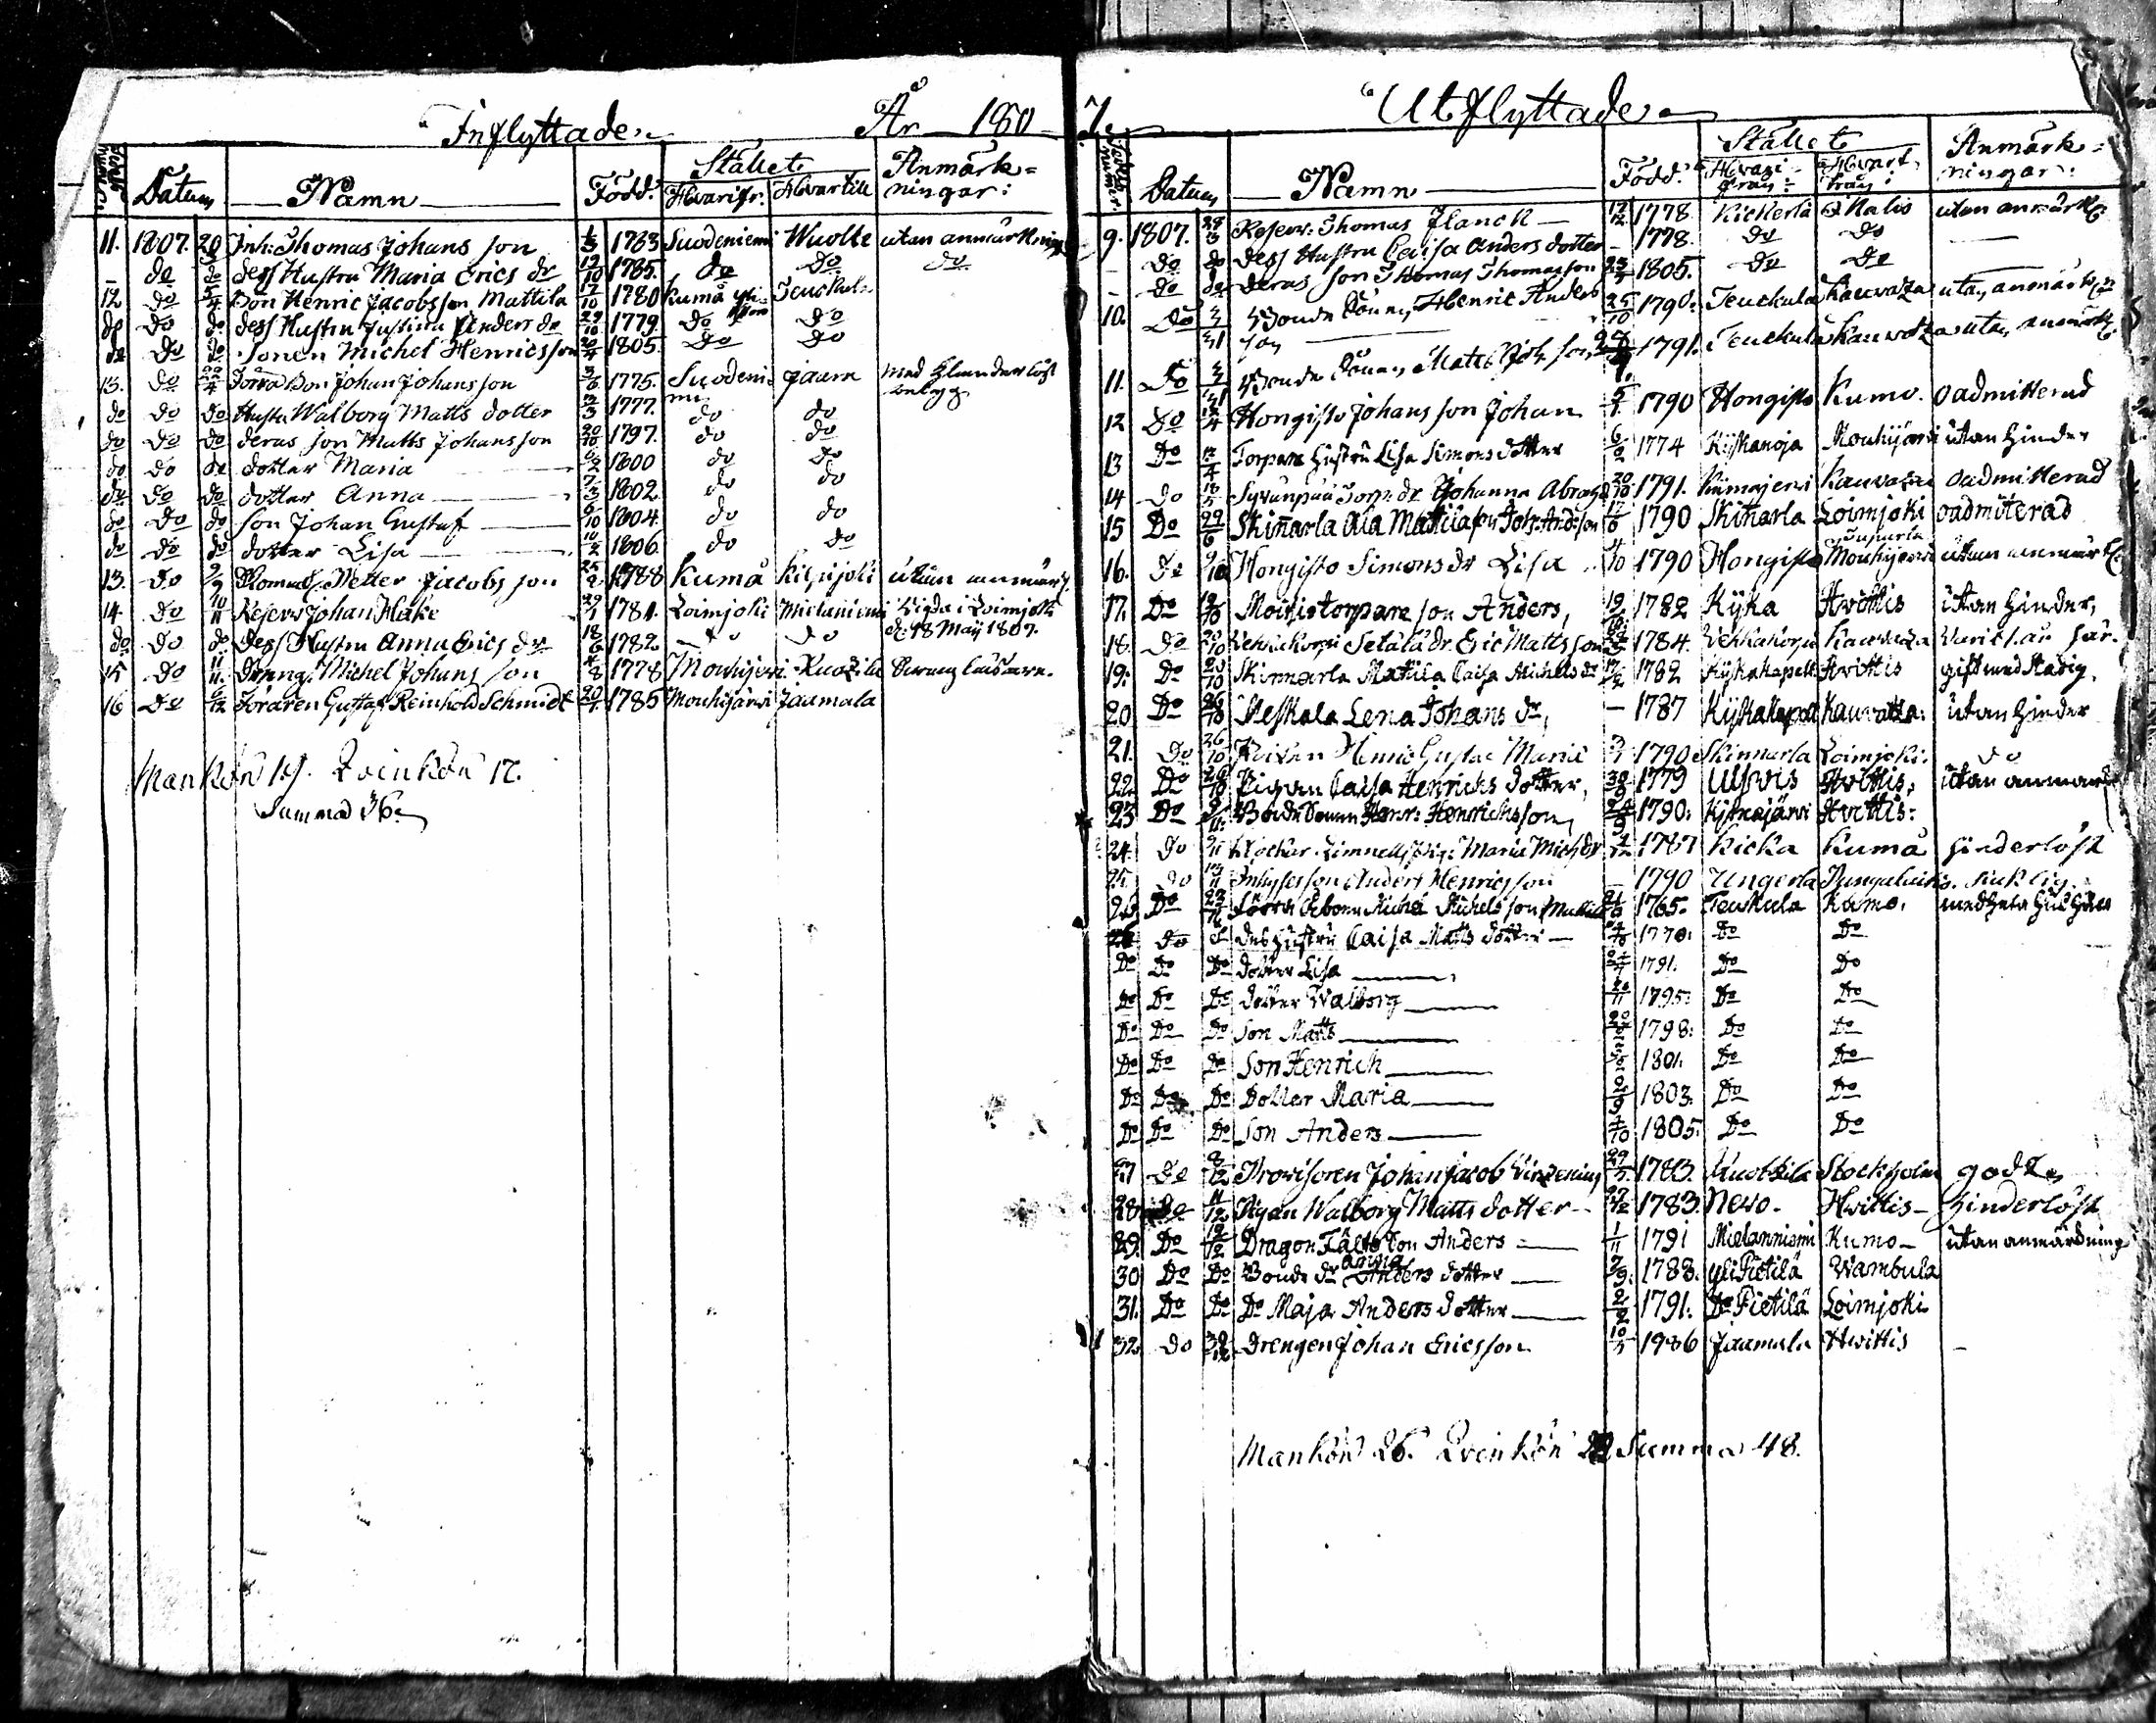 Inflyttade. År 180
Sedel numer. Datum Namn Född. Stället Hvarifr. Hvartill Anmärkningar:
11. 1807. 29/3 Inh: Thomas Johans son 1/3 1763 Suodeniemi Wuolle utan anmärkning
– do do dess Hustru Maria Erics dr 12/10 1785. do Do do
12 do 5/4 Bon Henric Jacobsson Mattila 17/10 1780 Kumå Teuckula
do Do do dess Hustru Justina Anders dr 29/10 1779. Do Do
do Do do Sonen Michel Henricsson 20/4 1805. Do Do
13. do 22/4 Bon Johan Johansson 3/6 1775. Suodeniemi Jaara med
do do do Hustr. Walborg Matts dotter 12/3 1777. do do
do Do do deras son Matts Johansson 20/10 1797. do do
do Do do dotter Maria 1800 do Do
do Do do dotter Anna 7/3 1802. do do
do Do do son Johan Gustaf 1804. do do
do Do do dotter Lisa 10/2 1806. do do
13. do Petter Jacobs son 1788 Kumå Kilpijoki utan anmärk.
14. Do 10/11 Reserv Johan Hake 29/1 1781. Loimjoki Mielaniemi Vigda i Loimjoki
do Do do Dess Hustru Anna Erics dr 18/6 1782. do do d. 18 Maij 1807.
15 do 11/11. Dreng. Michel Johans son 4/8 1778 Mouhijervi
16 Do 6/12 Föraren Gustaf Reinhold Schmidt 20/1. 1785 Mouhijärvi Jaamala
Mankön 19. Qvinkön 17.
Summa 36.
7. Utflyttade
numer. Datum Namn Född. Stället Hvarifrån: Hvart Anmärkningar:
9. 1807. 29/3 Reserv: Thomas Flanck 12/12 1778. Kickerlä utan anmärk.
– do do dess Hustru Caisa Anders dotter – 1778. do do
– do do deras son Thomas Thomasson 1805. do do
10. Do Bonde Sonen Henric Anders son 25/10 1790. Teuckula Kauvatza utan anmärk.
11. Do Bonde Sonen Matts Joh. son 1791. Teuckula Kauvatza utan anmärk.
12 Do 12/4 Hongisto Johans son Johan 1790 Hongisto Kumo. Oadmitterad
13 Do 12/4 Torpare Hustru Lisa Simons dotter 6/2 1774 Kijkanoja Mouhijervi utan hinder
14 Do 18/5 Torp. dr Johanna Abrah. 20/10 1791. Kiimajervi Kauvatza oadmitterad
15 Do 22/6 Skinnarla Ala Mattila son Joh: And:son 17/6 1790 Skinnarla Loimjoki oadmitterad
16. do Hongisto Simons dr Lisa 1790 Hongisto Mouhijervi utan anmärk.
17. Do 18/10 Moisio torpare son Anders, 1782 Kijka Hvittis utan hinder,
18. Do 20/10 Setälä dr. Eric Mattsson 1784. Kauvatza
19. Do 20/10 Skinnarla Mattila Caisa Michels dr 17/2 1782 Kijkakapell Hvittis gift med Stadig.
20 Do 26/10 Meskala Lena Johans dr, – 1787 Kijkakapel Kauvatza: utan hinder
21. Do 26/10 1790 Skinnarla Loimjoki. do
22. Do 29/10 Pigan Caisa Henrichs dotter, 1779 Ullvis Hvittis, utan anmark
23 Do Bonde Sonen Henr: Henrichsson 24/9 1790. Hvittis:
24. do Limnells pig: Maria Mich:dr 1787 Kicka Kumå hinderlöst
25. do 13/11 Inhyses son Anders Henricsson – 1790 Ungerla
26. Do Michel Michels son Mattila 1765. Teukula Kumo. med hela hus
do des Hustru Caisa Matts dotter – 1770. Do Do
Do Do Do dotter Lisa 1791. Do Do
Do Do Do dotter Walborg 1795. Do Do
Do Do Do Son Matts 1798. Do Do
Do Do Do Son Henrich 1801. Do Do
Do Do Do Dotter Maria 1803. Do Do
Do Do Do Son Anders 4/10 1805. Do Do
27 Do 8/12 Provisoren Johan Jacob 29/5 1783. Stockholm godt
28 Do 11/12 Pigan Walborg Matts dotter 1783. Nevo. Hvittis – hinderlöst
29. Do 12/12 Dragon Fälts Son Anders 1/11 1791 Mielanniemi Kumo – utan anmärckning
30 Do Do Bonde dr Anna Anders dotter 7/9. 1788. yli Pietilä Wambula
31. Do Do Do Maja Anders dotter 2/2 1791. Do Pietilä Loimjoki
32. do 30/12 Drengen Johan Ericsson 10/5 1786 Jaamala Hwittis –
Mankön 26. Qvinkön 22 Summa 48.